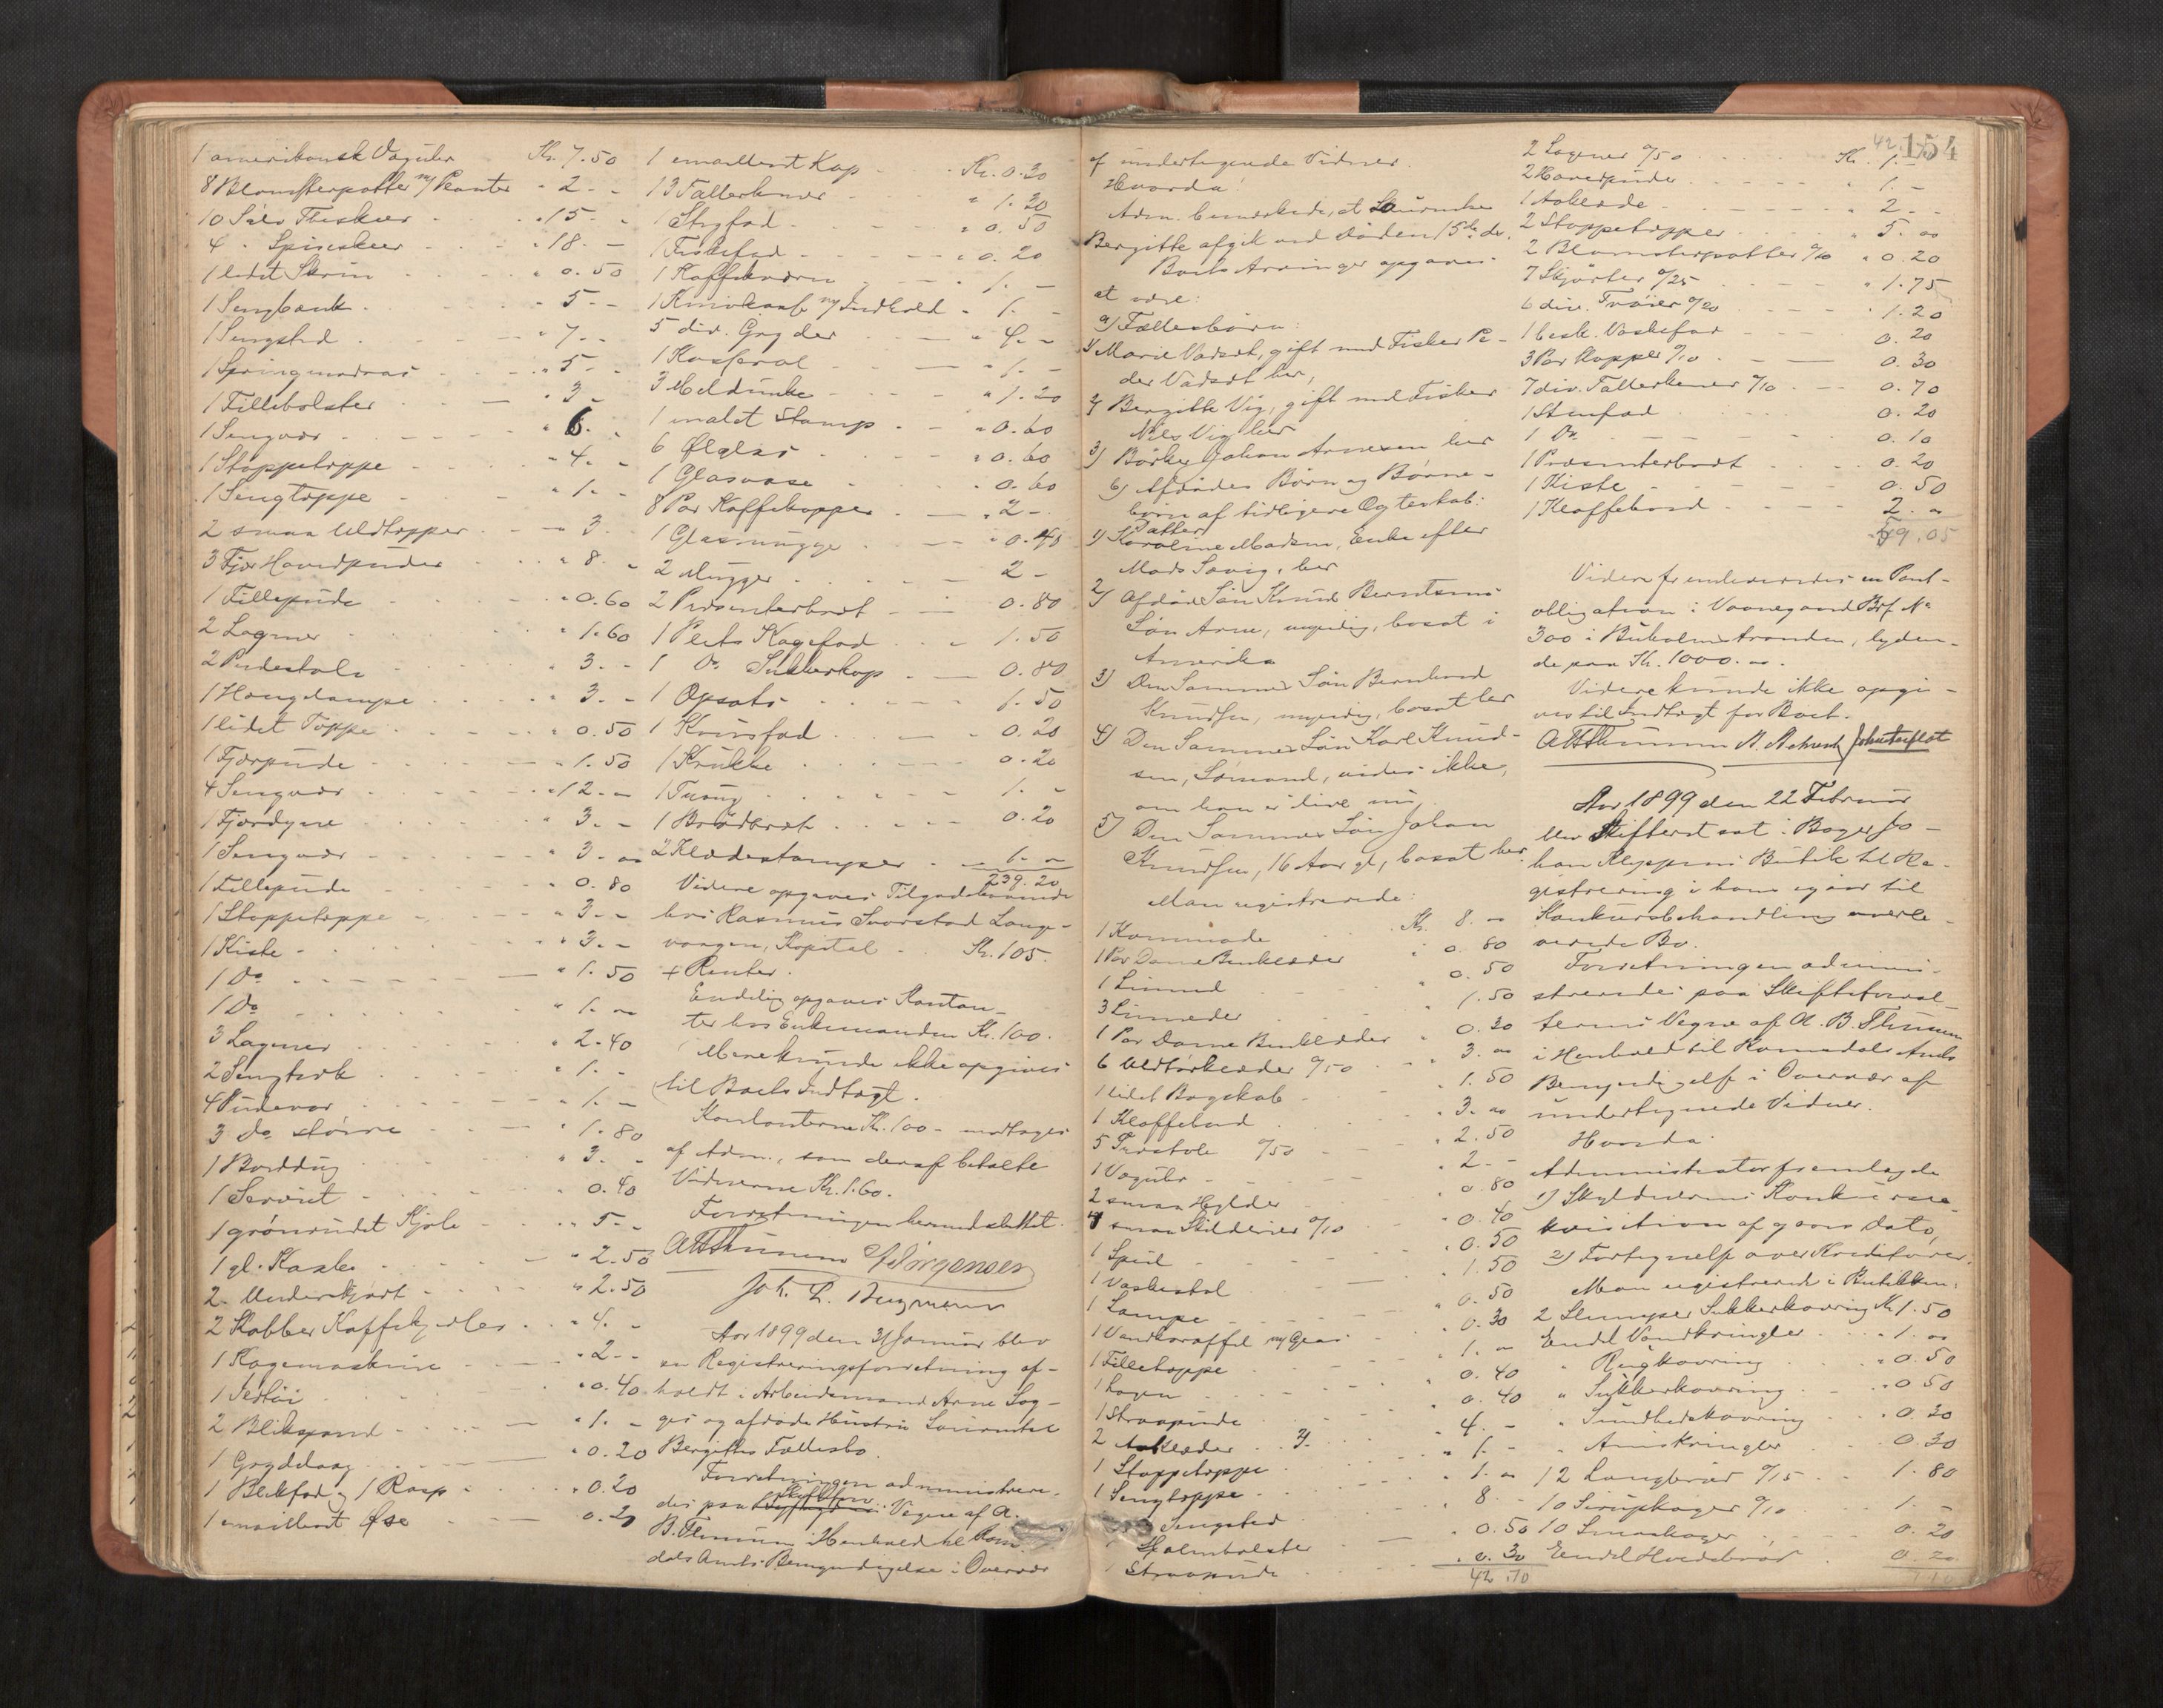 1 amerikansk Vaguhr Kr. 7.50
8 Blomsterpotter m/ Planter " 2. -
10 Sølv Theskeer " 15. -
4 " Spiseskeer " 18. -
1 lidet Skrin " 0.50
1 Sengbænk " 5. -
1 Sengsted " 7. -
1 Springmadras " 5. -
1 Fillebolster " 3. -
1 Sengvær " 6. -
1 Stoppetæppe " 4. -
1 Sengtæppe " 1. -
2 smaa Uldtæpper " 3.
3 Fjær Hovedpuder " 8. -
1 Fillepude " 0.60
2 Lagner " 1.60
2 Pindestole " 3. -
1 Hænglampe " 3. -
1 lidet Tæppe " 0.50
1 Fjærpude " 1.50
4 Sengvær " 12. -
1 Fjærdyne " 3. -
1 Sengvær " 3. -
1 Fillepude " 0.80
1 Stoppetæppe " 3. -
1 Kiste " 3. -
1 Do " 1.50
1 Do " 1. -
3 Lagner " 2.40
2 Sengtæk " 1. -
4 Pudevar " 1. -
3 do større " 1.80
1 Borddug " 3. -
1 Serviet " 0.40
1 grønrudet Kjole " 5. -
1 gl. Kaabe " 2.50
2 Underskjørt " 2.50
2 Kobber Kaffekjedler " 4. -
1 Kagemaskine " 2. -
1 " 0.40
2 Blikspand " 1. -
1 Grydelaag " 0.20
1 Blikfad og 1 Rasp " 0.20
1 emailleret Øse 0.20
1 emailleret Kop Kr. 0.30
13 Tallerkener " 1.30
1 Stegfad " 0.50
1 Fiskefad " 0.20
1 Kaffekværn " 1. -
1 Knivkasse m/ Indhold " 1. -
5 div. Gryder " 4. -
1 Kasserol " 1. -
3 Meldunke " 1.20
1 malet Stamp " 0.60
6 Ølglas " 0.60
1 Glasvase 0.60
8 Par Kaffekopper " 2 -
1 Glasmugge " 0.40
2 Mugger 2 -
2 Præsenterbræt 0.80
1 Plets Kagefad " 1.50
1 Do Sukkerkop 0.80
1 Opsats 1.50
1 Knivsfad 0.20
1 Krukke 0.20
1 1. -
1 Brødbræt 0.20
2 Klædestamper 1. -
239.20
Videre opgaves Tilgodehavende
hos Rasmus Svorstad Lang-
vaagen, Kapital Kr. 105.
+ Renter.
Endelig opgaves Kontan-
ter hos Enkemanden Kr. 100.
Mere kunde ikke opgives
til Boets Indtægt.
Kontanterne Kr. 100 - modtages
af Adm., som deraf betalte
Vidnerne Kr. 1.60.
Forretningen hermed sluttet.
A B Thunem Jørgensen
Joh. L.
Aar 1899 den 31 Januar blev
en Registreringsforretning af-
holdt i Arbeidsmand Arne
og afdøde Hustru
Bergittes Fællesbo.
Forretningen administrere-
des paa Skifteforv. Vegne af A.
B. Thunem i Henhold til Roms-
dals Amts Bemyndigelse i Overvær
154
af undertegnede Vidner.
Hvorda:
Adm. bemærkede, at
Bergitte afgik ved Døden 15de ds.
Boets Arvinger opgaves
at være:
a) Fællesbørn:
1) Marie Vadset, gift med Fisker Pe-
der Vadset her,
2) Bergitte Vig, gift med Fisker
Nils Vig her
3) Johan Arnesen her
b) Afdødes Børn og Børne-
børn af tidligere Ægteskab:
1) Datter
Karoline Madsen, Enke efter
Mads Sævig, her
2) Afdøde Søn Knud Berntsens
Søn Arne, myndig, bosat i
Amerika
3) Den Sammes Søn Bernhard
Knudsen, myndig, bosat her
4) Den Sammes Søn Karl Knud-
sen, Sømand, vides ikke,
om han er i live nu
5) Den Sammes Søn Johan
Knudsen, 16 Aar gl, bosat her.
Man registrerede:
1 Kommode Kr. 8. -
1 Par Dame Benklæder " 0.80
1 Linned 0.50
3 Linneder " 1.50
1 Par Dame Benklæder 0.30
6 Uldtørklæder a/50 " 3. -
1 lidet Bogskab " 1.50
1 Klaffebord " 3. -
5 Træstole a/50 " 2.50
1 Vaguhr " 2. -
2 smaa Hylder " 0.80
4 smaa Skilderier a/10 " 0.40
1 Speil 0.50
1 Vaskestol 1.50
1 Lampe " 0.50
1 Vandkaraffel m/ Glas 0.30
1 Filletæppe 1. -
1 Lagen 0.40
1 Straapude 0.40
2 Aaklæder 4. -
1 Stoppetæppe " 1. -
1 Sengtæppe " 1. -
Sengsted 8 -
Halmbolster " 0.50
1 Straapude " 0.30
42.10
42.
2 Lagner a/50 Kr. 1 -
2 Hovedpuder " 1. -
1 Aaklæde " 2. -
2 Stoppetæpper " 5. -
2 Blomsterpotter a/10 " 0.20
7 Skjørter a/25 " 1.75
6 div. Trøier a/20 " 1.20
1 besk. Vaskefad 0.20
3 Par Kopper a/10 0.30
7 div. Tallerkener a/10 0.70
1 Stenfad 0.20
1 Do 0.10
1 Præsenterbræt 0.20
1 Kiste 0.50
1 Klaffebord 2. -
59.05
Videre fremlagdes en Pant-
obligation i Vaaningsmand Brf. No
300 i Buholmstranden, lyden-
de paa Kr. 1000. -.
Videre kunde ikke opgi-
ves til Indtægt for Boet.
A B Thunem
Aar 1899 den 22 Februar
blev Skifteret sat i Bager Jo-
han Kleppens Butik til Re-
gistrering i hans igaar til
Konkursbehandling overle-
verede Bo.
Forretningen admini-
streredes paa Skifteforval-
terens Vegne af A. B. Thunem
i Henhold til Romsdals Amts
Bemyndigelse i Overvær af
undertegnede Vidner.
Hvorda:
Administrator fremlagde
1) Skyldnerens Konkursre-
kvisition af gaars Dato,
2) Fortegnelse over Kreditorer.
Man registrerede i Butikken:
2 Slumper Sukkerkavring Kr. 1.50
Endel Vandkringler " 1. -
" Rugkavring " 0.50
" Sukkerkavring " 0.50
" Sundhedskavring " 0.30
" Aniskringler 0.30
12 Langbrød a/15 1.80
10 Sirupskager a/10 1. -
10 Smaakager 0.20
Endel Hvedebrød 0.20